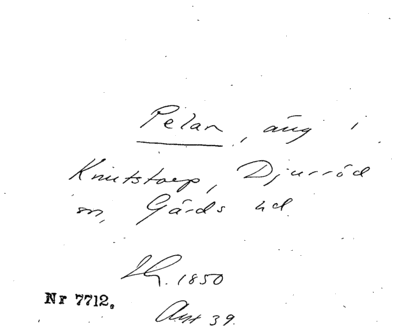 Pelan, äng i
Knutstorp, Djurröd
sn, Gärds hd
1850
Nr 7712.
39.